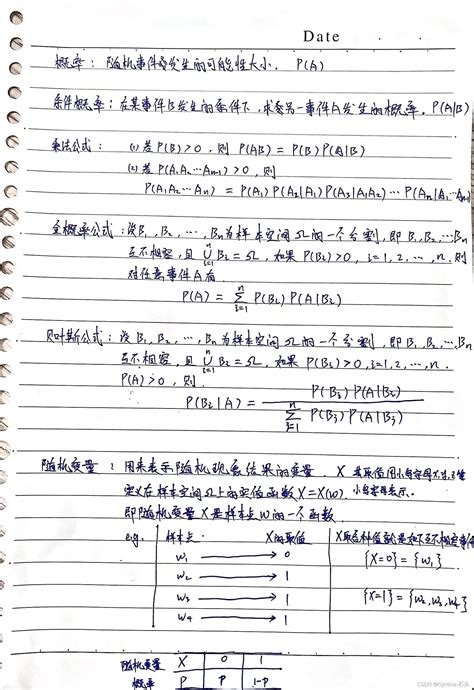 Date
概率：随机事件发生的可能性大小. P(A)
条件概率：在某事件B发生的条件下，求另一事件A发生的概率. P(A|B)
乘法公式： (1) 若 P(B)>0，则 P(AB) = P(B)P(A|B)
(2) 若 P(A₁A₂…Aₙ₋₁)>0，则
P(A₁A₂…Aₙ) = P(A₁)P(A₂|A₁)P(A₃|A₁A₂)…P(Aₙ|A₁…Aₙ₋₁)
全概率公式：设B₁, B₂, …, Bₙ为样本空间Ω的一个分割，即 B₁, B₂, …Bₙ
互不相容，且 ⋃ⁿᵢ₌₁ Bᵢ = Ω，如果 P(Bᵢ)>0, i=1, 2, …, n. 则
对任意事件A有
P(A) = ∑ⁿᵢ₌₁ P(Bᵢ)P(A|Bᵢ)
贝叶斯公式：设 B₁, B₂, …, Bₙ为样本空间Ω的一个分割，即 B₁, B₂, …Bₙ
互不相容，且 ⋃ⁿᵢ₌₁ Bᵢ = Ω，如果 P(Bᵢ)>0, i=1, 2, …, n.
P(A)>0，则
P(Bᵢ|A) = P(Bᵢ)P(A|Bᵢ) / ∑ⁿⱼ₌₁ P(Bⱼ)P(A|Bⱼ)
随机变量：用来表示随机现象结果的变量. X 其取值用小写字母
定义在样本空间Ω上的实值函数X=X(w). 小写字母表示.
即随机变量X是样本点w的一个函数
e.g. 样本点 X的取值 X取各种值就是 互不相容事件
w₁ → 0 {X=0}={w₁}
w₂ → 1
w₃ → 1 {X=1}={w₂,w₃,w₄}
w₄ → 1
随机变量 X 0 1
概率 P P 1-P
CSDN @Cynthia-石头